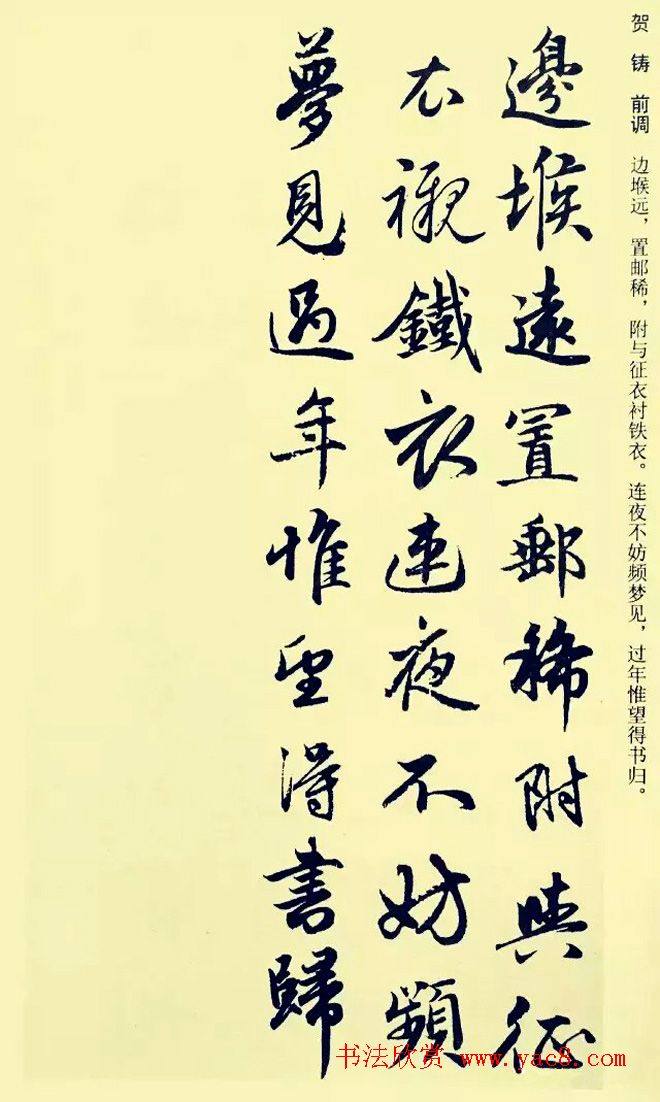 贺铸 前调 边堠远，置邮稀，附与征衣衬铁衣。连夜不妨频梦见，过年惟望得书归。
邊堠遠置郵稀附與征
衣襯鐵衣連夜不妨頻
夢見過年惟望得書歸
书法欣赏 www.yac8.com